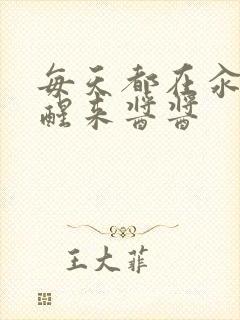 每天都在汆
醒来酱酱
王大菲